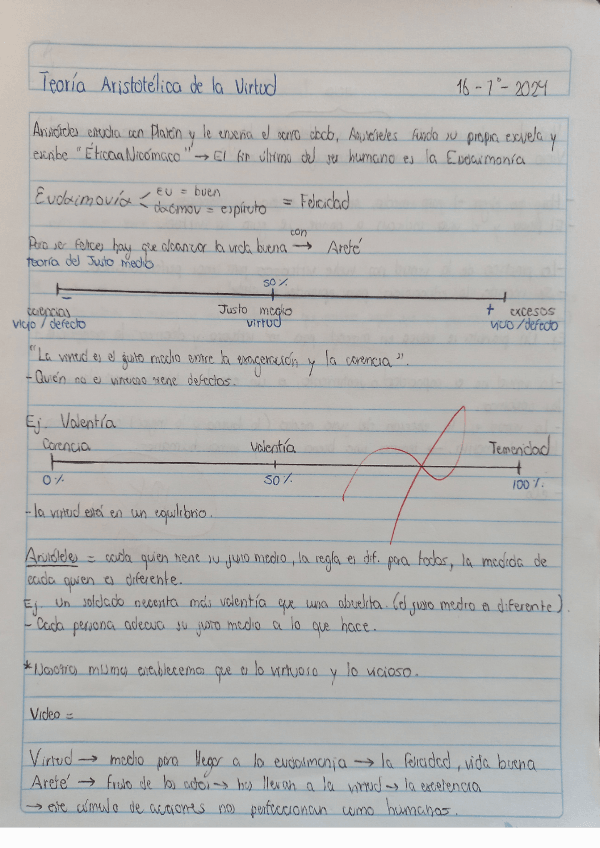 Teoría Aristotélica de la Virtud 16 - 7° - 2024
Aristóteles estudia con Platón y le enseña el sumo Aristóteles funda su propia escuela y
escribe "Ética a Nicómaco" → El fin último del ser humano es la Eudaimonía
Eudaimovía < eu = buen
daemov = espíruto = Felicidad
Para ser felices hay que alcanzar la vida buena con → Areté
teoría del Justo medio
50%
- +
carencias Justo medio excesos
vicio / defecto virtud vicio / defecto
"La virtud es el justo medio entre la exageración y la carencia".
- Quién no es virtuoso tiene defectos.
Ej. Valentía
Carencia Valentía Temeridad
0% 50% 100%
- la virtud está en un equilibrio.
Aristóteles = cada quien tiene su justo medio, la regla es dif. para todos, la medida de
cada quien es diferente.
Ej. Un soldado necesita más valentía que una abuelita. (el justo medio es diferente).
- Cada persona adecua su justo medio a lo que hace.
* Nosotros mismos establecemos que es lo virtuoso y lo vicioso.
Video =
Virtud → medio para llegar a la eudaimonia → la felicidad, vida buena
Areté → fruto de los actos → nos llevan a la virtud → la excelencia
→ este cúmulo de acciones nos perfeccionan como humanos.